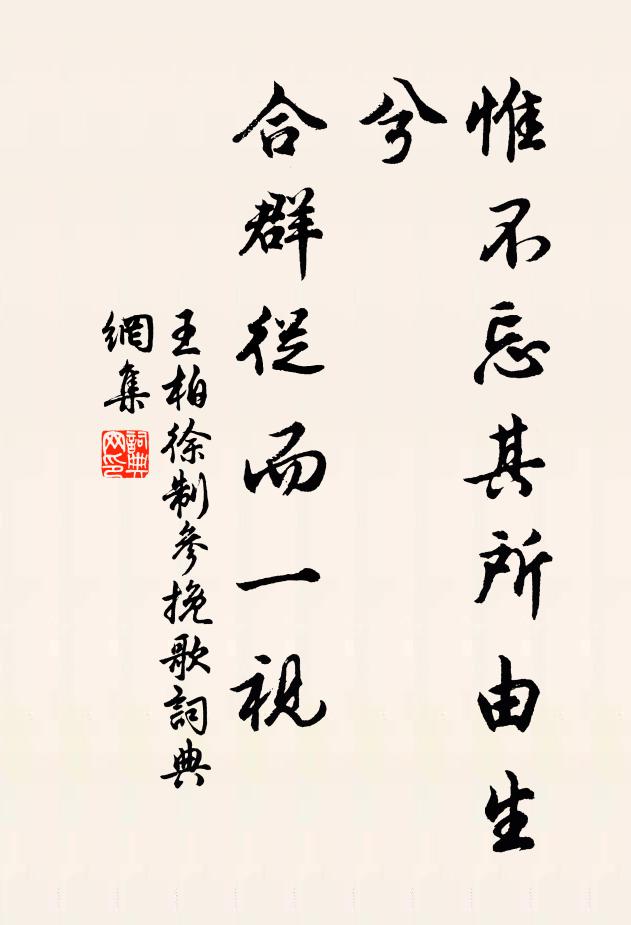 惟不忘其所由生
兮
合群從而一視
王柏徐制參挽歌詞典
網集
詞典網印